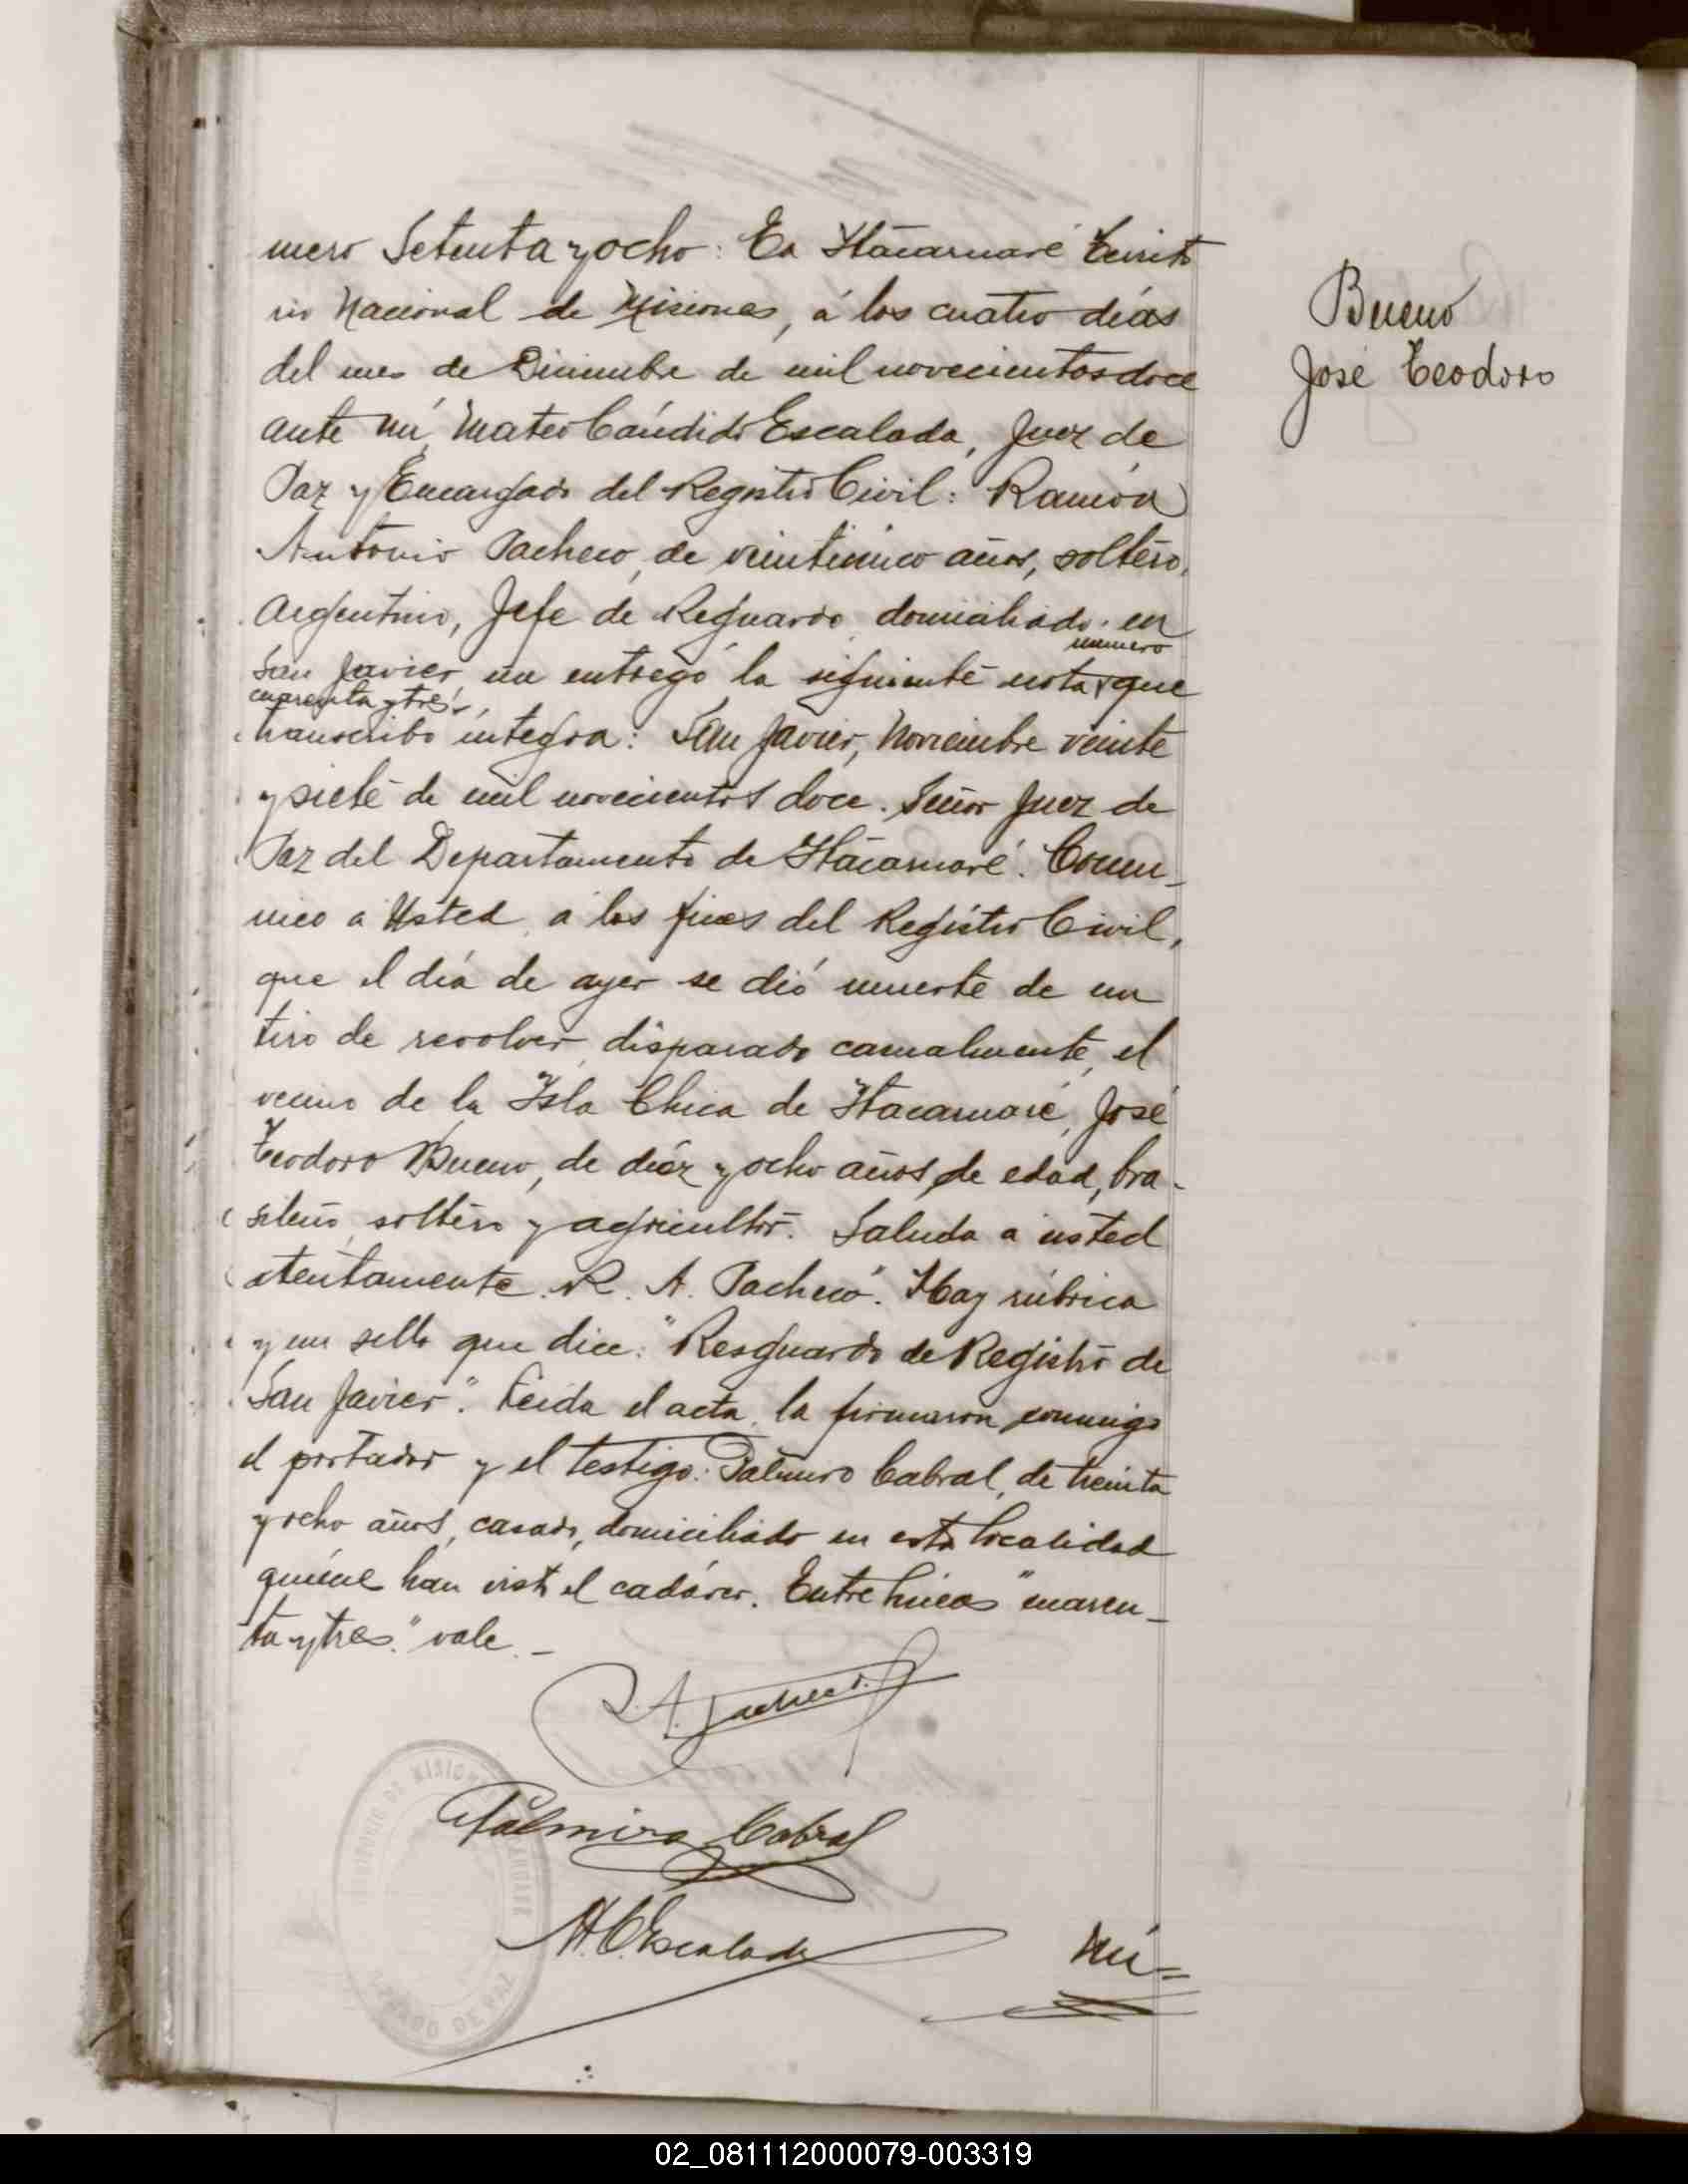 mero Setenta y ocho: En Itacaruaré Territo
rio Nacional de Misiones, á los cuatro días
del mes de Diciembre de mil novecientos doce
ante mí, Mateo Cándido Escalada, Juez de
Paz y Encargado del Registro Civil: Ramón
Antonio Pacheco, de veinticinco años, soltero,
Argentino, Jefe de Reguardo domiciliado en
numero
San Javier me entregó la siguiente nota que
cuarenta y tres,
transcribo íntegra: San Javier, Noviembre veinte
y siete de mil novecientos doce. Señor Juez de
Paz del Departamento de Itacaruaré. Comu-
nico a Usted, a los fines del Registro Civil,
que el día de ayer se dió muerte de un
tiro de revolver, disparado casualmente, el
vecino de la Isla Chica de Itacaruaré, José
Teodoro Bueno, de diéz y ocho años de edad, bra-
sileño, soltero y agricultor. Saluda a usted
atentamente. R. A. Pacheco". Hay rúbrica
y un sello que dice: "Resguardo de Registro de
San Javier". Leída el acta, la firmaron conmigo
el portador y el testigo: Palmiro Cabral, de treinta
y ocho años, casado, domiciliado en esta localidad
quiéne han visto el cadáver. Entre líneas "cuaren-
ta y tres." vale. -
R. A. Pacheco
Palmiro Cabral
M. C. Escalada
Nú=
Bueno
José Teodoro
TERRITORIO DE MISIONES
JUZGADO DE PAZ
02_081112000079-003319